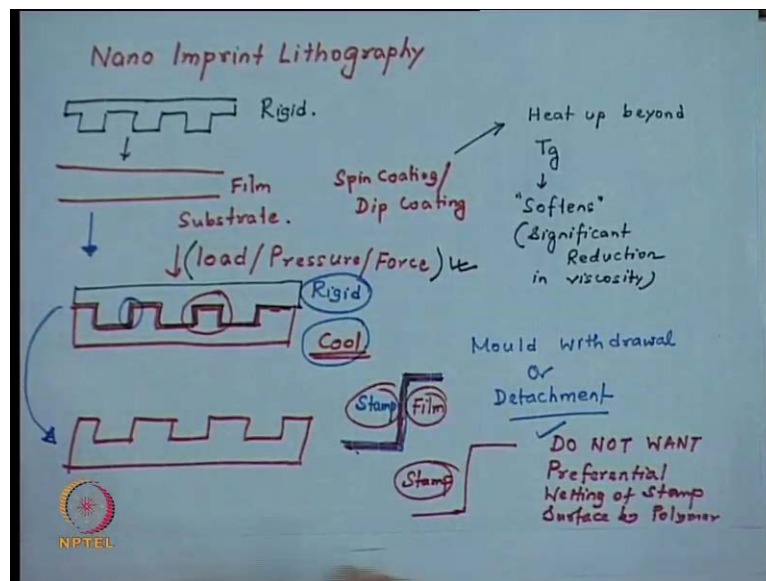 Nano Imprint Lithography
Rigid.
Film
Substrate.
Spin Coating/
Dip Coating
Heat up beyond
Tg
"Softens"
(Significant
Reduction
in viscosity)
(load/Pressure/Force)
Rigid
Cool
Mould withdrawal
or
Detachment
Stamp
Film
Stamp
DO NOT WANT
Preferential
Wetting of Stamp
Surface by Polymer
NPTEL